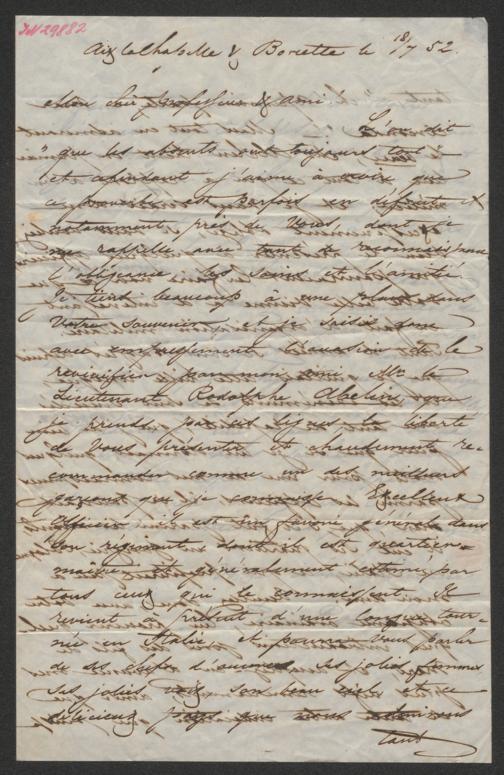 IN 29882
Aix la Chapelle & Borcette le 18/7 52.
Mon cher professeur & ami
L'on dit
" que les absents ont toujours tort
et cependant j'aime à voir que
ce proverbe est parfois en défaut &
notamment près de Vous, dont je
me rappelle avec tant de reconnaissance
l'obligeance les soins et l'amitié
Je tiens beaucoup à une place dans
Votre souvenir et je saisis donc
avec empressement l'occasion de le
revivifier par mon ami Mr le
Lieutenant Rodolphe Abelin que
je prends par ces lignes la liberté
de Vous présenter et chaudement re-
commander comme un des meilleurs
garçons que je connaisse Excellent
Officier il est en faveur générale dans
son régiment dont il est
et généralement estimé par
tous ceux qui le connaissent. Il
revient à présent d'une longue tour-
née en Italie et pourra Vous parler
de ses
Ses jolies voix son beau ciel et ce
délicieux pays que nous admirons
tant